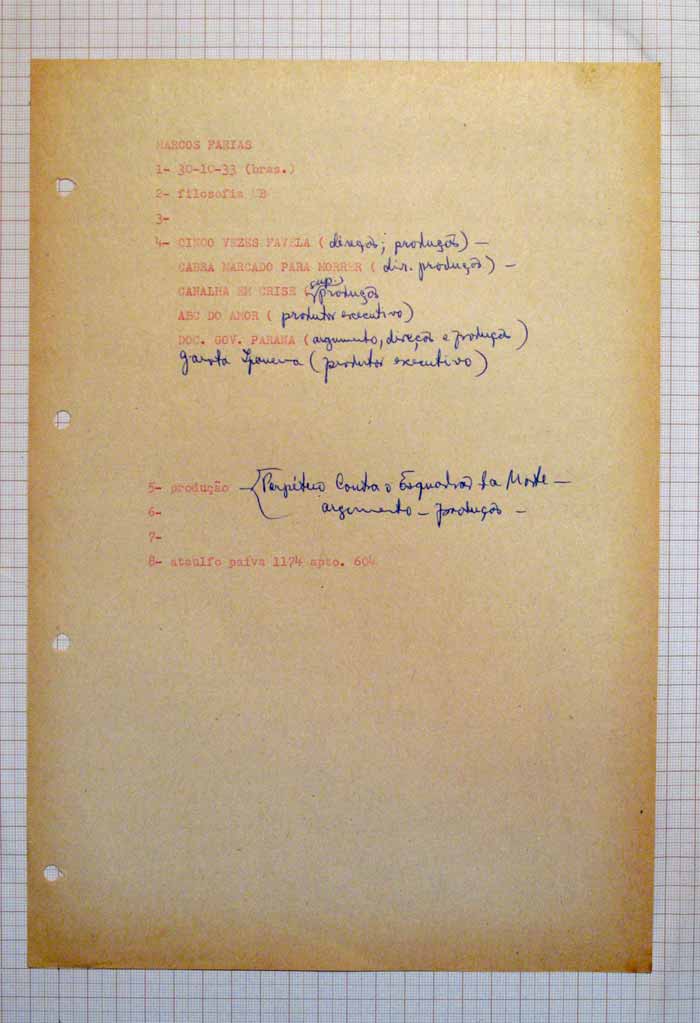 MARCOS FARIAS
1- 30-10-33 (bras.)
2- filosofia UB
3-
4- CINCO VEZES FAVELA ( direção; produção) —
CABRA MARCADO PARA MORRER ( dir. produção ) —
CANALHA EM CRISE ( sup. produção
ABC DO AMOR ( produtor executivo)
DOC. GOV. PARANA (argumento, direção e produção )
Garota Ipanema (produtor executivo )
5- produção — Perpétuo Contra o Esquadrão da Morte —
6- argumento — produção —
7-
8- ataulfo paiva 1174 apto. 604